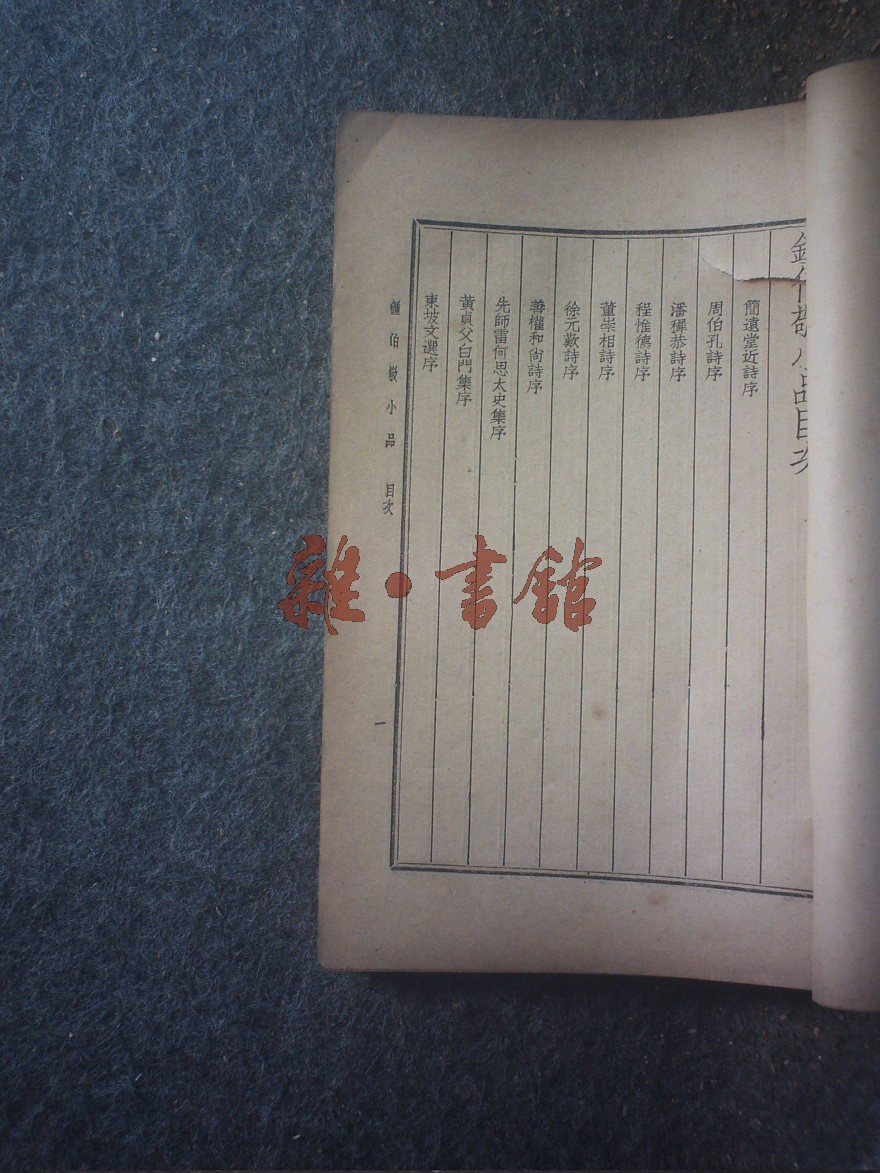 鍾伯敬小品目次
簡遠堂近詩序
周伯孔詩序
潘穉恭詩序
程惟德詩序
董崇相詩序
徐元歎詩序
善權和尚詩序
先師雷何思太史集序
黃貞父白門集序
東坡文選序
鍾伯敬小品 目次
一
雜·書館